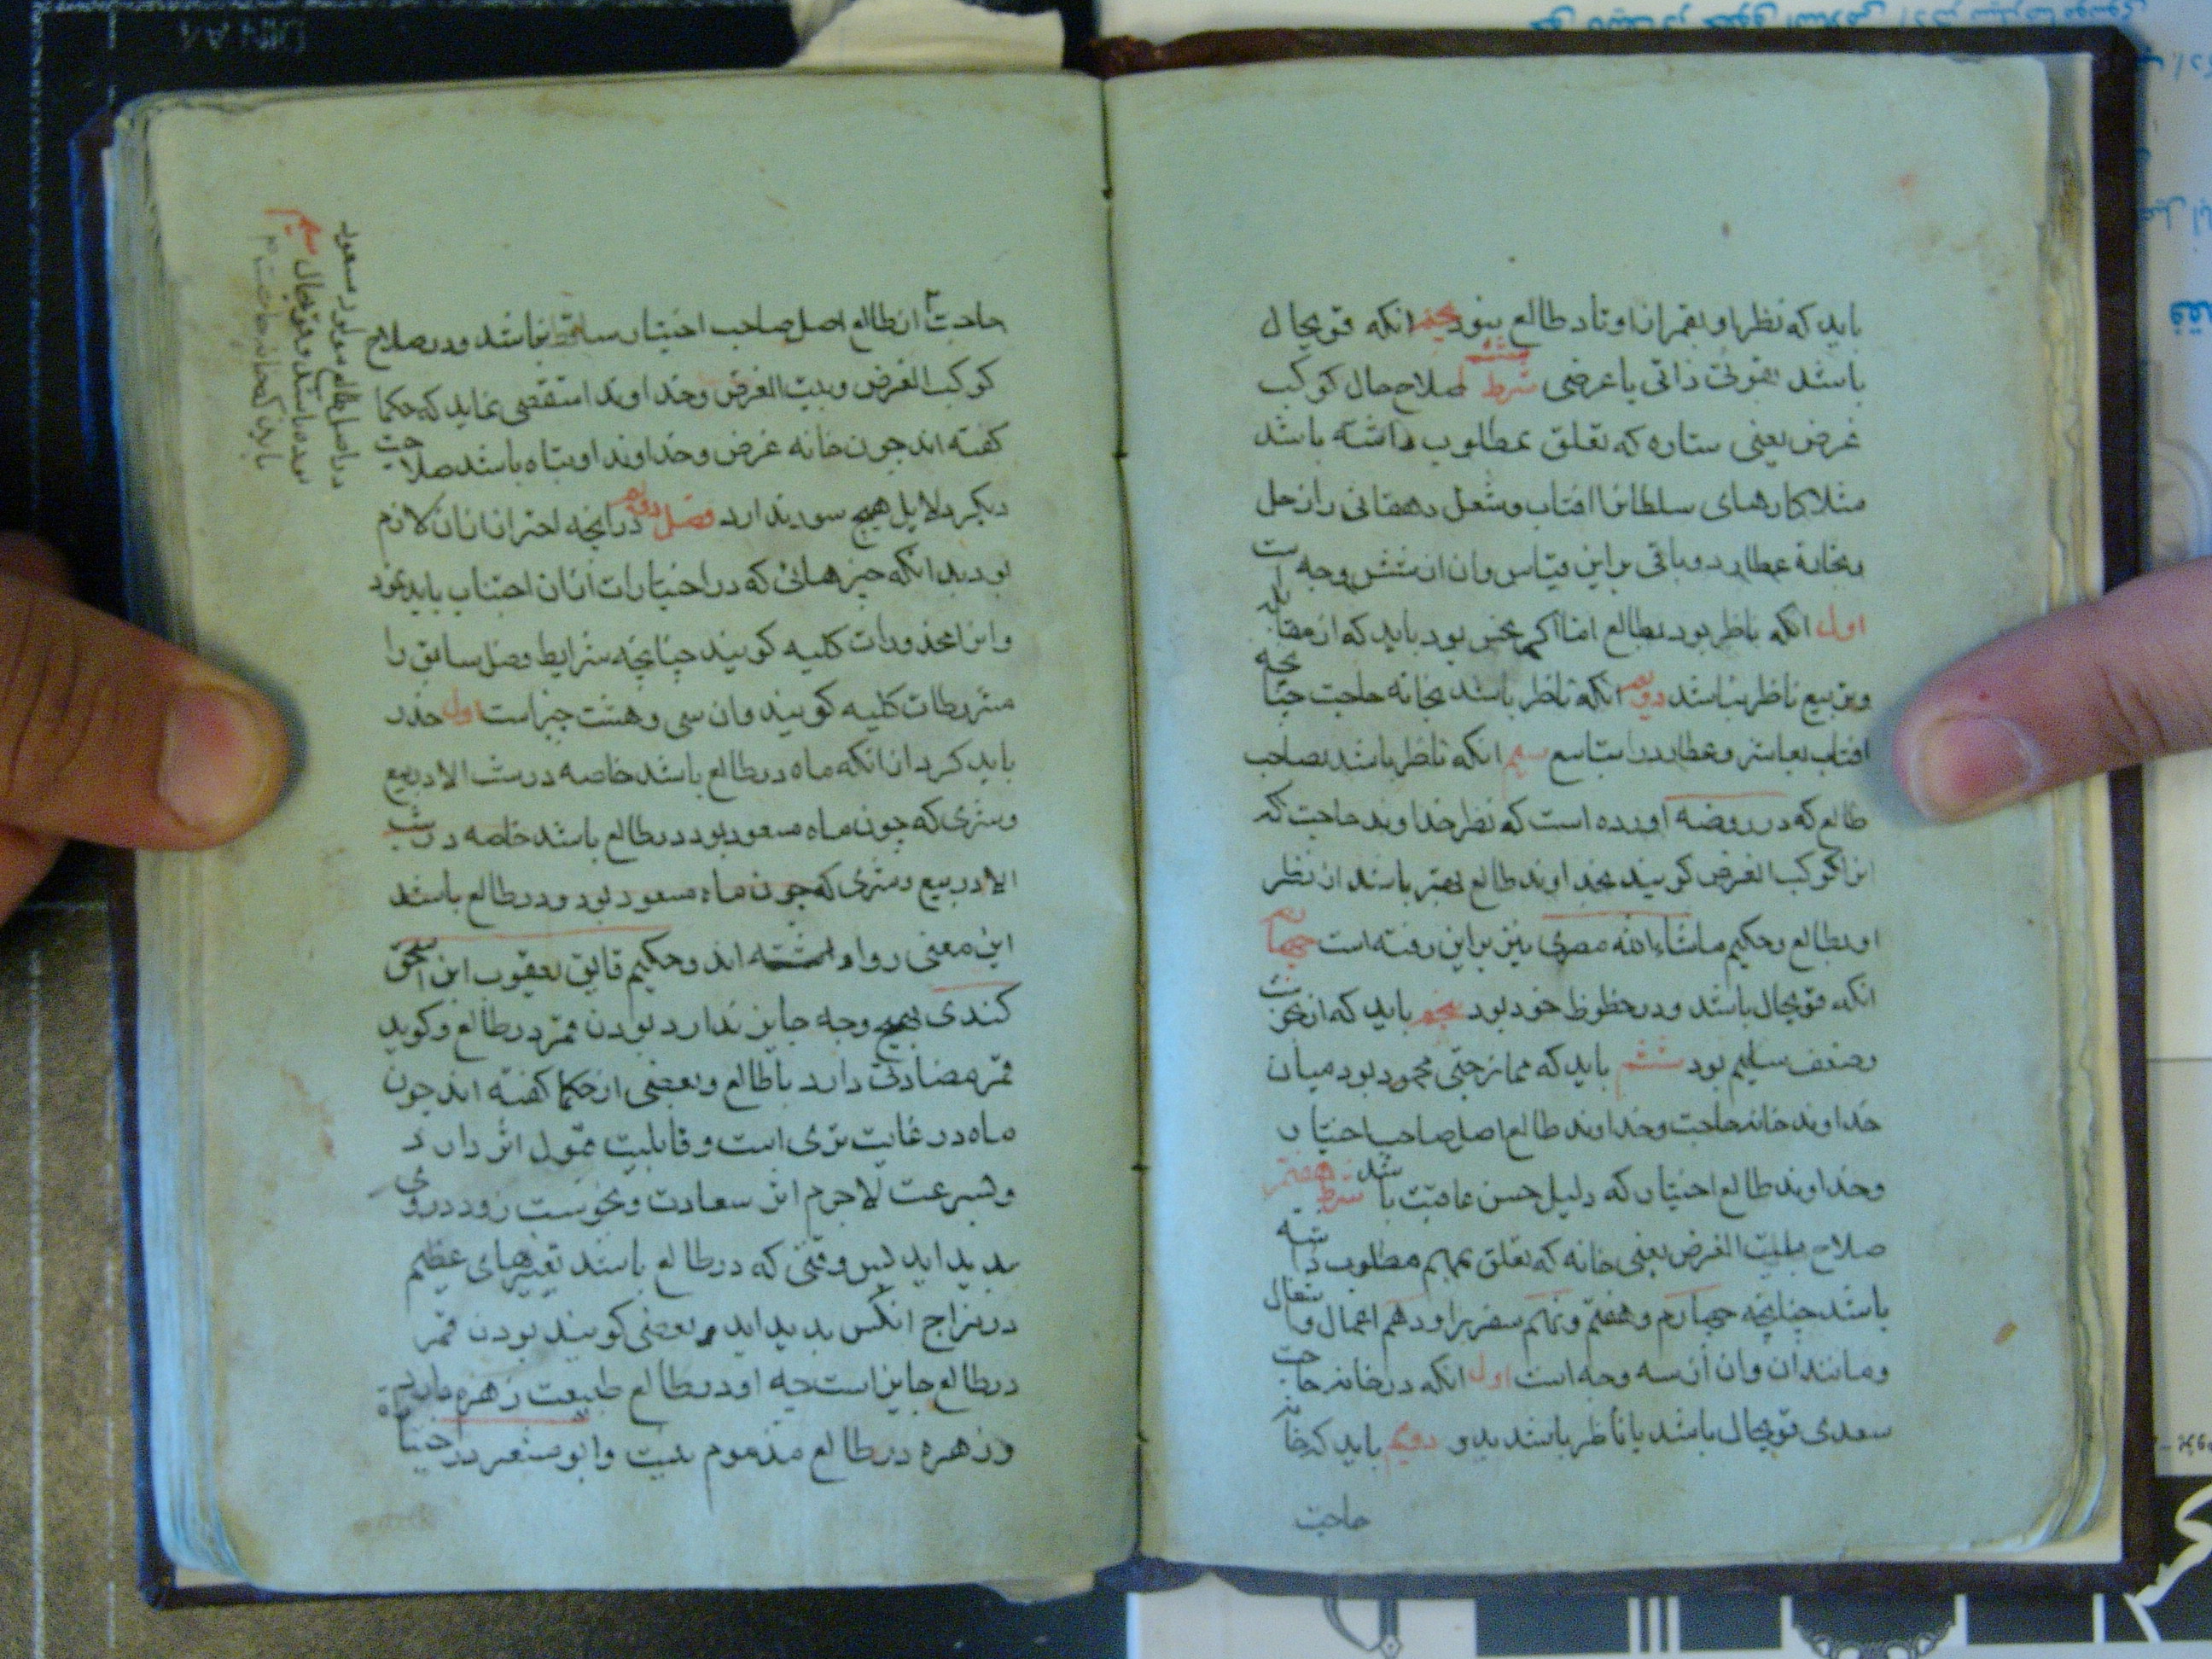 باید که نظر او بقمر از اوتاد طالع بود پنجم انکه قویحال
باشد بقوتی ذاتی یا عرضی شرط ششم صلاح حال کوکب
غرض یعنی ستاره که تعلق بمطلوب داشته باشد
مثلا کارهای سلطانرا افتاب وشغل دهقانی را زحل
وبخانه عطارد وباقی براین قیاس وان از شش وجه است
اول انکه ناظر بود بطالع اما اکر نحس بود باید که از مقابله
وتربیع ناظر نباشد دویم انکه ناظر باشد بخانه حاجت چنانچه
افتاب بعاشر وعطارد را بتاسع سیم انکه ناظر باشد بصاحب
طالع که در روضه اورده است که نظر خداوند حاجت که
انرا کوکب الغرض کویند بخداوند طالع بهتر باشد از نظر
او بطالع وحکیم ماشاءالله مصری نیز براین رفته است چهارم
انکه قویحال باشد ودر حظوظ خود بود پنجم باید که از نحوست
وضعف سلیم بود ششم باید که ممازجتی محمود بود میان
خداوند خانه حاجت وخداوند طالع اصل صاحب اختیار
وخداوند طالع اختیار که دلیل حسن عاقبت باشد شرط هفتم
صلاح بیت الغرض یعنی خانه که تعلق بمهم مطلوب داشته
باشد چنانچه چهارم وهفتم ونهم سفر را ودهم اعمال واشغال
ومانند ان وان از سه وجه است اول انکه در خانه حاجت
سعدی قویحال باشد یا ناظر باشد بدو دویم باید که خانه
حاجت
حاجت از طالع اصل صاحب اختیار ساقط نباشد ودر صلاح
کوکب الغرض وبیت الغرض وخداوند استقصی نماید که حکما
کفته اند چون خانه غرض وخداوند او تباه باشد صلاحیت
دیکر دلایل هیچ سود ندارد فصل دویم در انچه احتراز از ان لازم
بود بدانکه چیزهائی که در اختیارات از ان اجتناب باید نمود
وانرا محذورات کلیه کویند چنانچه شرایط فصل سابق را
مشروطات کلیه کویند وان سی وهشت چیز است اول حذر
باید کرد از انکه ماه در طالع باشد خاصه در شب الا در بیع
وشری که چون ماه مسعود بود در طالع باشد خاصه در شب
الا در بیع وشری که چون ماه مسعود بود ودر طالع باشد
این معنی روا داشته اند وحکیم فایق یعقوب ابن اسحق
کندی بهیچ وجه جایز ندارد بودن قمر در طالع وکوید
قمر مضادتی دارد با طالع وبعضی از حکما کفته اند چون
ماه در غایت تری است وقابلیت قبول اثر دارد
وبسرعت لاجرم اثر سعادت ونحوست زود در وی
پدید اید پس وقتی که در طالع باشد تغییرهای عظیم
در مزاج انکس پدید اید وبعضی کویند بودن قمر
در طالع جایز است چه او در طالع طبیعت زهره دارد
وزهره در طالع مذموم نیست وابومعشر در
در اصل طالع مولود مسعود
بوده باشد وقویحال سیم
باید که خانه حاجت